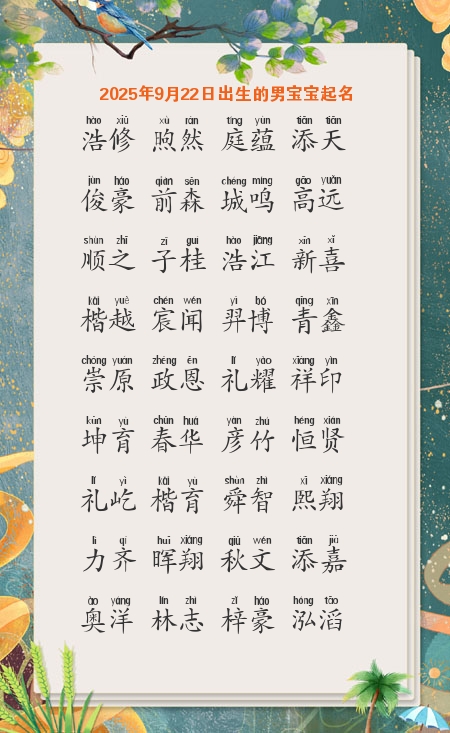 2025年9月22日出生的男宝宝起名
hào xiū xù rán tíng yùn tiān tiān
浩修 煦然 庭蕴 添天
jùn háo qián sēn chéng míng gāo yuǎn
俊豪 前森 城鸣 高远
shùn zhī zǐ guì hào jiāng xīn xǐ
顺之 子桂 浩江 新喜
kǎi yuè chén wén yì bó qīng xīn
楷越 宸闻 羿博 青鑫
chóng yuán zhèng ēn lǐ yào xiáng yìn
崇原 政恩 礼耀 祥印
kūn yù chūn huá yàn zhú héng xián
坤育 春华 彦竹 恒贤
lǐ yì kǎi yù shùn zhì xī xiáng
礼屹 楷育 舜智 熙翔
lì qí huī xiáng qiū wén tiān jiā
力齐 晖翔 秋文 添嘉
ào yáng lín zhì zǐ háo hóng tāo
奥洋 林志 梓豪 泓滔